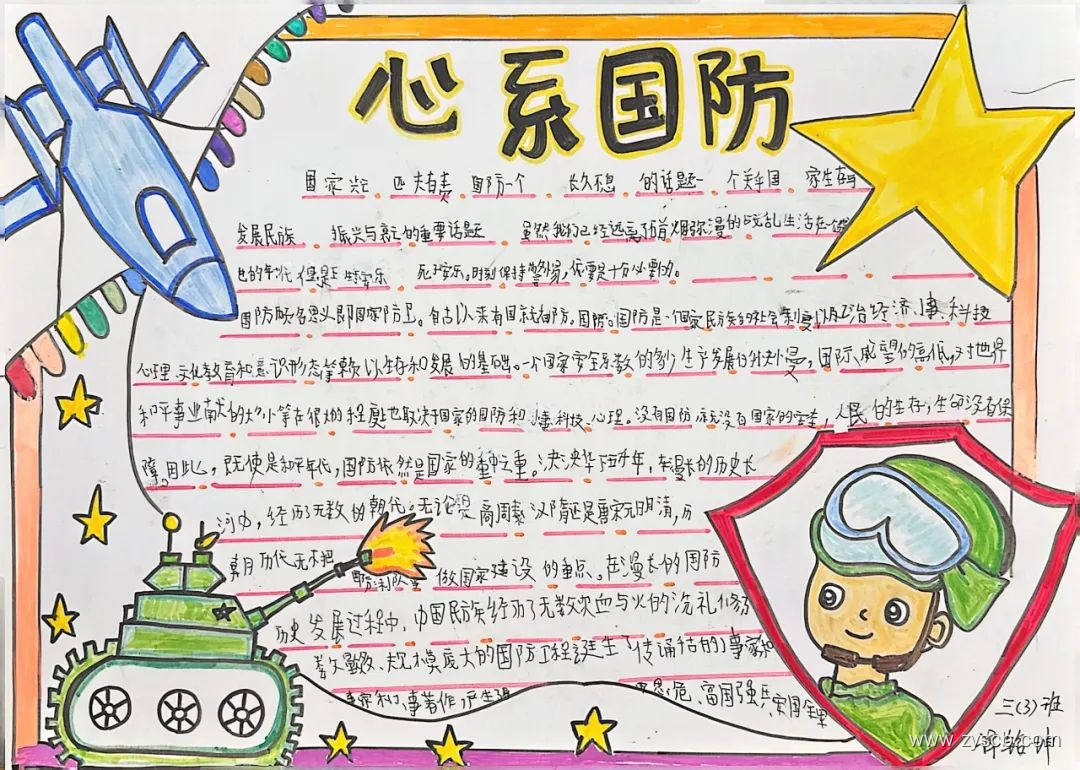 心系国防
国家兴亡 匹夫有责 国防一个 长久不息 的话题一 个关乎国 家生存与
发展民族 振兴与衰亡的重要话题 虽然我们已经远离了硝烟弥漫的战乱生活在
的年代 但是 死于安乐。时刻保持警惕，依需是十分必要的。
国防顾名思义即国家防卫。自古以来有国家就有国防。国防是一个国家民族的社会制度以及政治经济，军事，科技
心理 文化教育和意识形态 赖以生存和发展的基础。一个国家安全系数的多少 生产发展的快慢，国际威望的高低，对世界
和平事业贡献的大小等在很大的程度也取决于国家的国防和 军事科技 心理。没有国防 就没有国家的安全，人民 的生存，生命没有保
障。因此，既使是和平年代，国防依然是国家的重中之重。泱泱华 五千年，在漫长的历史长
河中，经历无数的朝代。无论是 商周秦 汉隋还是唐宋元明清，历
朝历代，无不把 做国家建设 的重点。在漫长的国防
历史 发展过程中，中国民族经历了无数次血与火的洗礼 修筑
数 规模庞大的国防工程 诞生了传诵 的军事家和
军事著作 产生 思危，富国强兵
三(3)班
www.zyscb.com